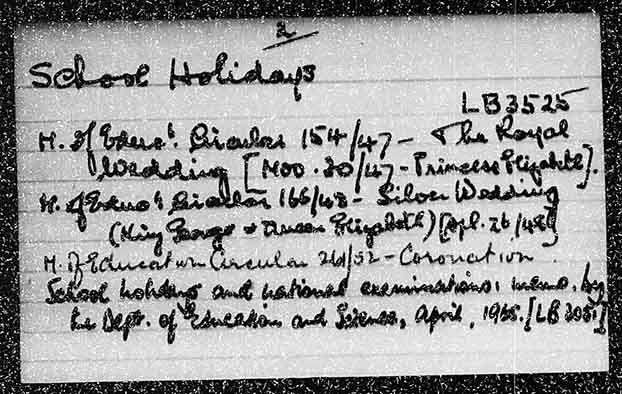 2
School Holidays
LB3525
M. of Educn. Circular 154/47 - The Royal
Wedding [Nov. 20/47 - Princess Elizabeth].
M. of Educn. Circular 166/48 - Silver Wedding
(King George & Queen Elizabeth) [Apl. 26/48]
M. of Education Circular /52 - Coronation
School holidays and national examinations: memo. by
the Dept. of Education and Science, April, 1965. [LB 3051]